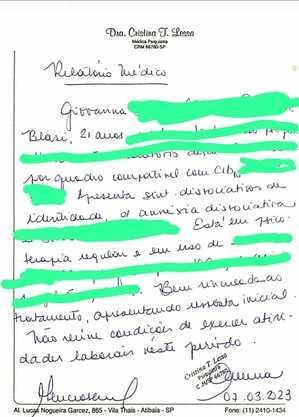 Dra. Cristina T. Lessa
Médica Psiquiatra
CRM 66780-SP
Relatório Médico
Giovanna
Blasi, 21 anos
por quadro compatível com CID
Apresenta sint. dissociativos de
identidade, e amnésia dissociativa
Está em psico
terapia regular e em uso de
Bem vinculada ao
tratamento, apresentando resposta inicial.
Não reúne condições de exercer ativi
dades laborais neste período.
Cristina T. Lessa
07.03.2023
Al. Lucas Nogueira Garcez, 865 - Vila Thais - Atibaia - SP Fone: (11) 2410-1434